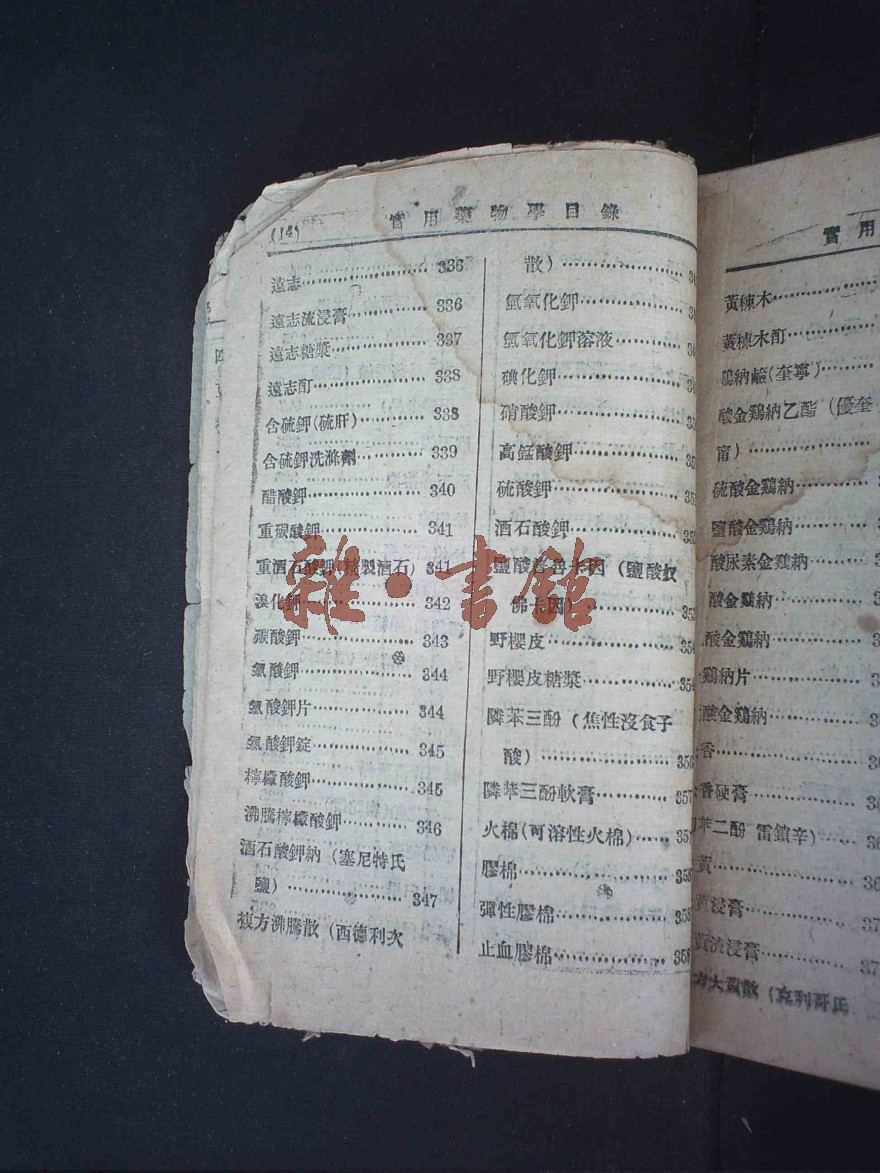 (14)
實用藥物學目錄
遠志 336
遠志流浸膏 336
遠志糖漿 337
遠志酊 338
含硫鉀(硫肝) 338
含硫鉀洗滌劑 339
醋酸鉀 340
重碳酸鉀 341
重酒石酸鉀(精製酒石) 341
溴化鉀 342
碳酸鉀 343
氯酸鉀 344
氯酸鉀片 344
氯酸鉀錠 345
檸檬酸鉀 345
沸騰檸檬酸鉀 346
酒石酸鉀納(塞尼特氏
鹽) 347
複方沸騰散(西德利次
散)
氫氧化鉀
氫氧化鉀溶液
碘化鉀
硝酸鉀
高錳酸鉀
硫酸鉀
酒石酸鉀
鹽酸普魯卡因(鹽酸奴
佛卡因) 353
野櫻皮 354
野櫻皮糖漿 354
隣苯三酚(焦性沒食子
酸) 356
隣苯三酚軟膏 357
火棉(可溶性火棉) 357
膠棉 358
彈性膠棉 358
止血膠棉 358
雜·書館
實用
黃楝木
黃楝木酊
鷄納鹼(奎寧)
酸金鷄納乙酯(優奎
甯)
硫酸金鷄納
鹽酸金鷄納
酸尿素金鷄納
酸金鷄納
酸金鷄納
鷄納片
酸金鷄納
香
香硬膏
苯二酚
黃
黃浸膏
黃流浸膏
方大黃散(克利哥氏